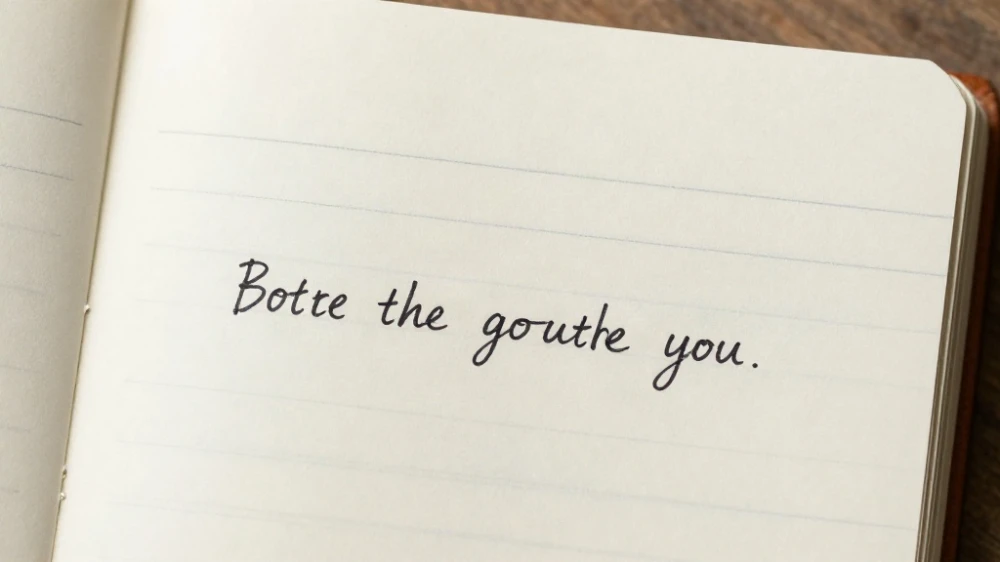 Botre the gouthe you.